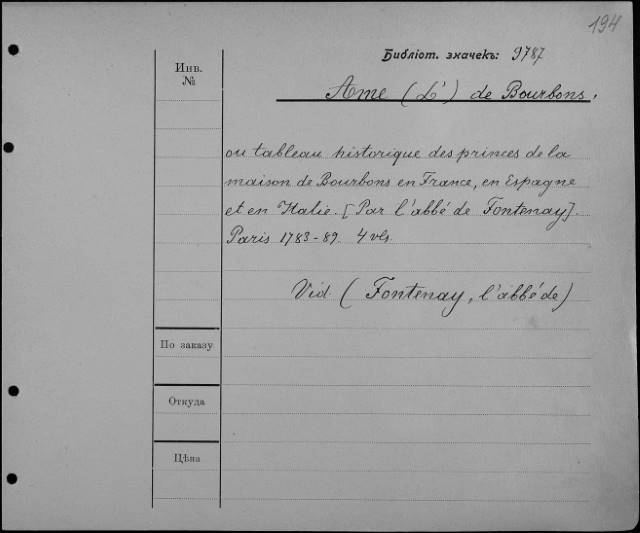 194
Библіот. значекъ: 9787
Инв.
№
Ame (L') de Bourbons.
ou tableau historique des princes de la
maison de Bourbons en France, en Espagne
et en Italie. [Par l'abbé de Fontenay].
Paris 1783-89. 4 vls.
Vid. (Fontenay, l'abbé de)
По заказу
Откуда
Цѣна